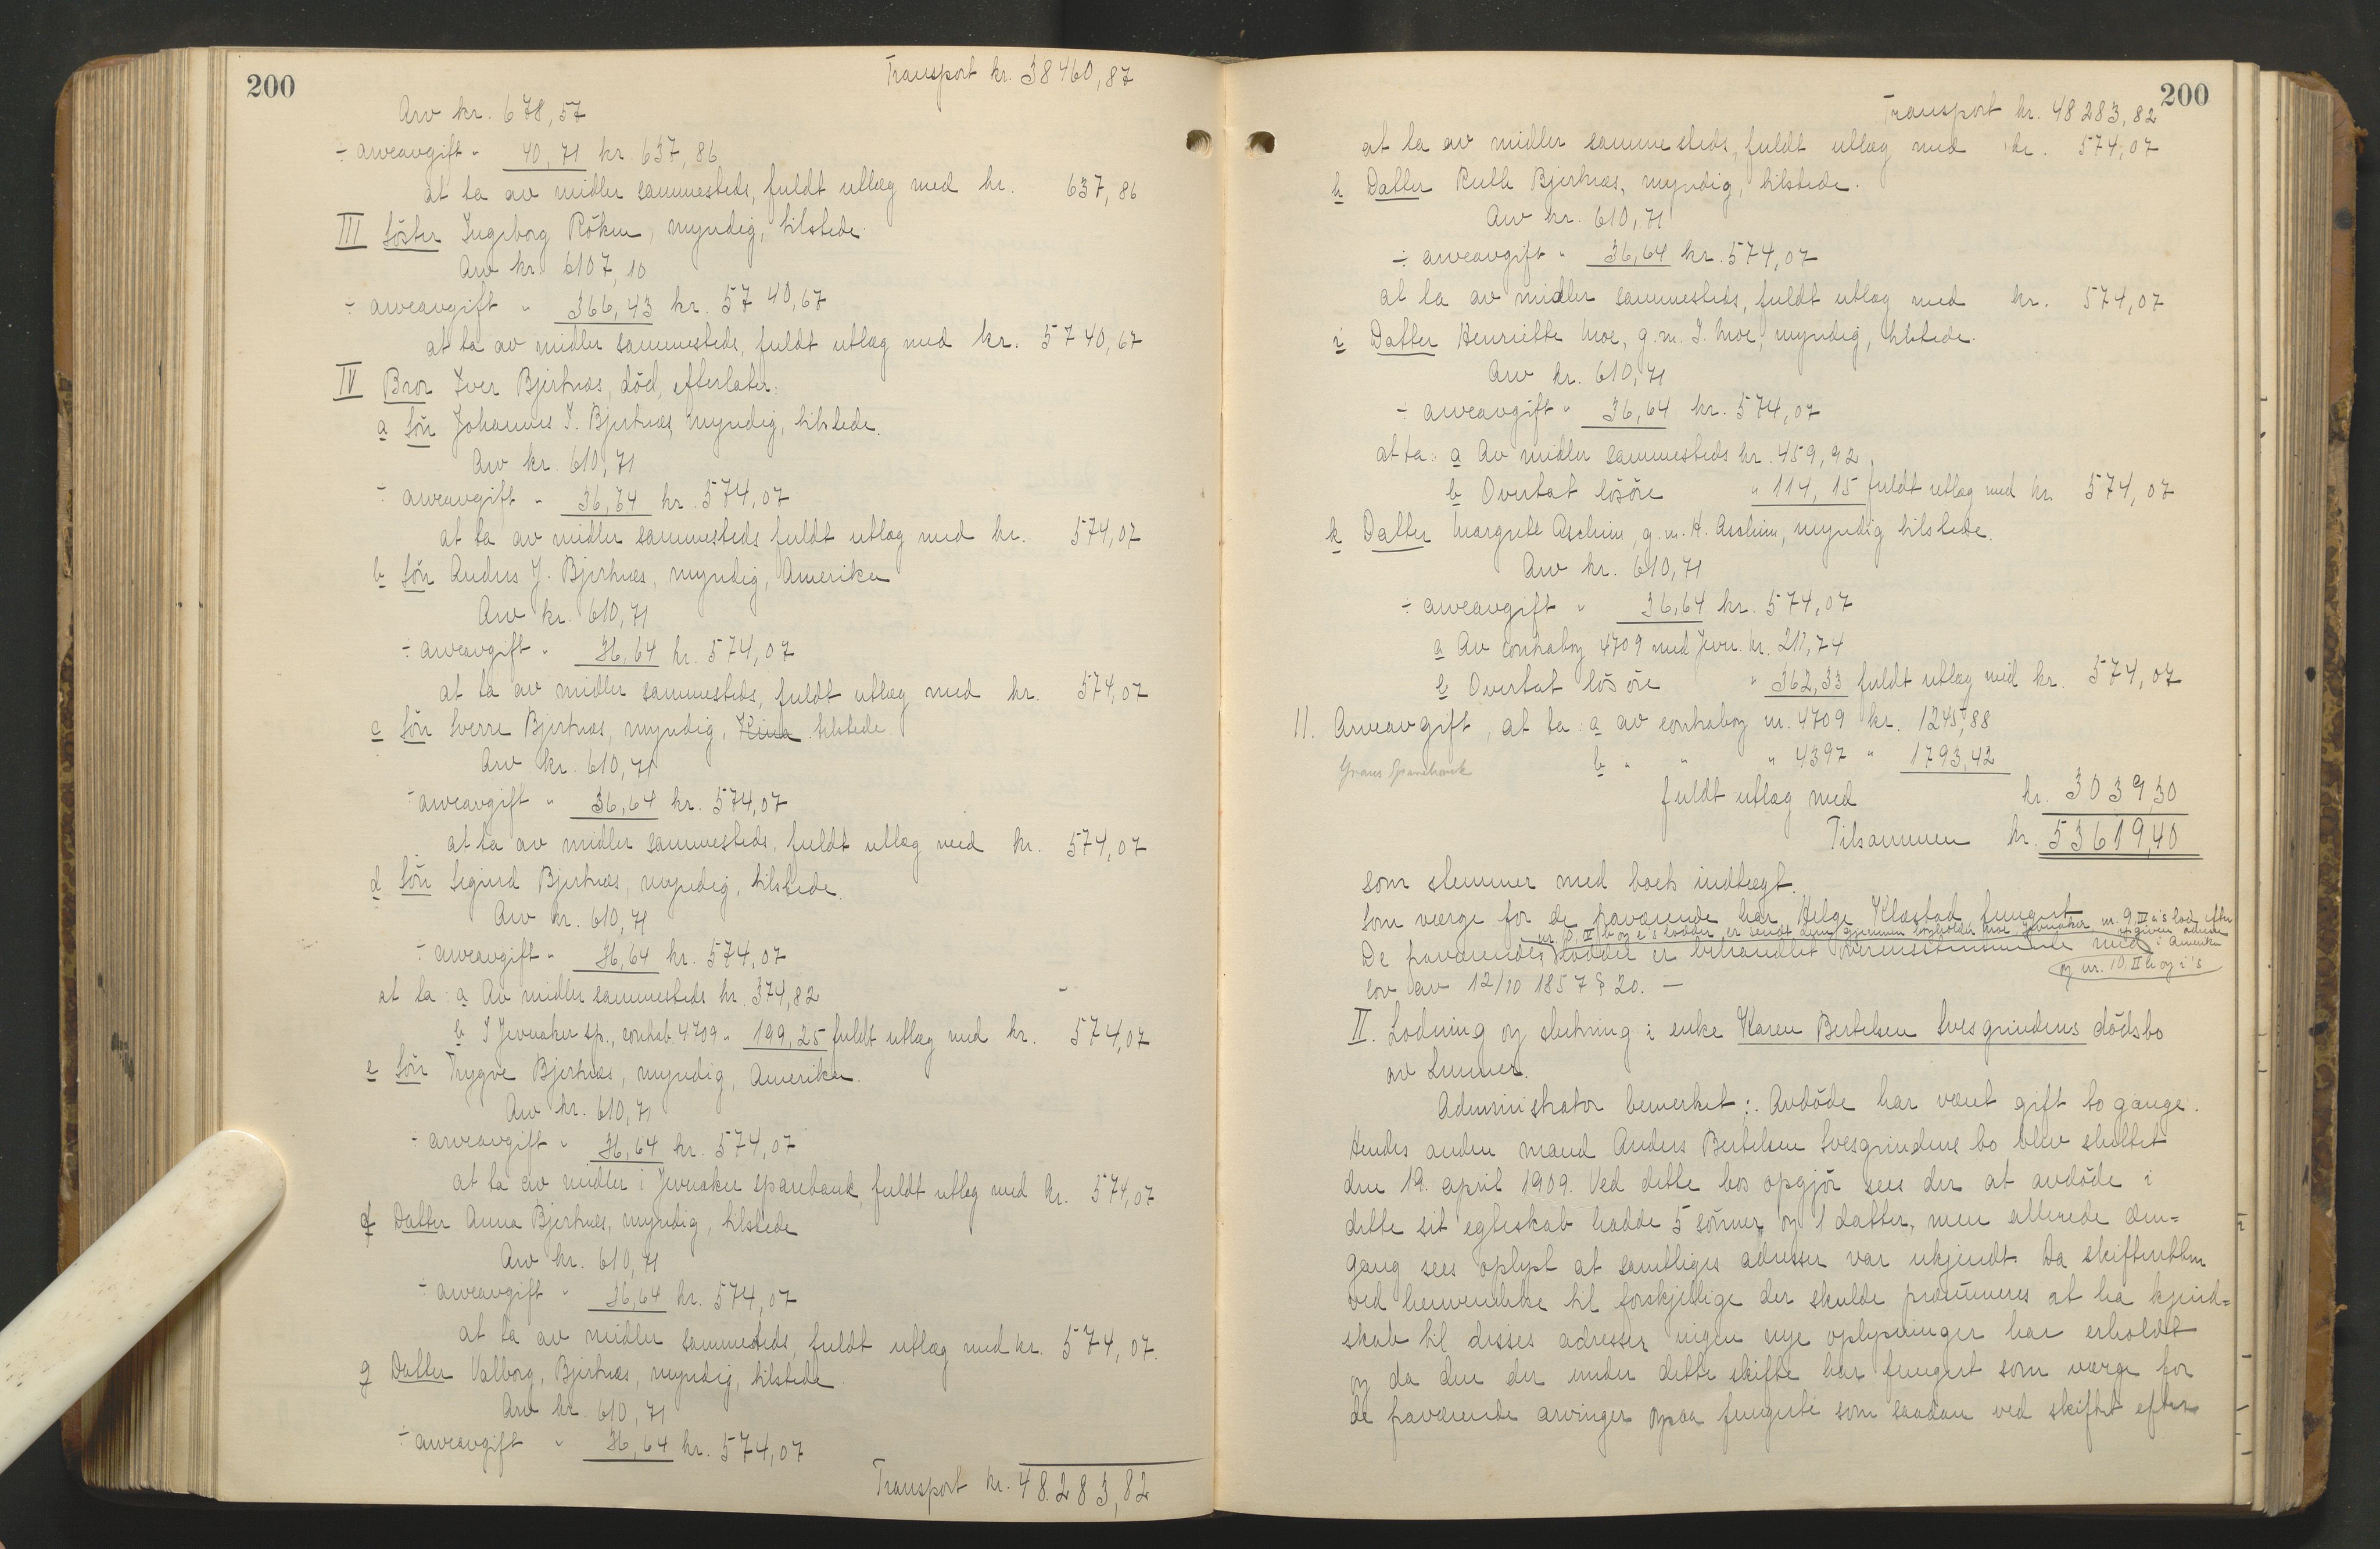 200
Transport kr. 38460,87
Arv kr. 678,57
÷ arveavgift " 40,71 kr. 637,86
at ta av midler sammesteds, fuldt utlæg med kr. 637,86
III Söster Ingeborg Röken, myndig, tilstede.
Arv kr. 6107,10
÷ arveavgift " 366,43 kr. 5740,67
at ta av midler sammesteds, fuldt utlæg med kr. 5740,67
IV Bror Iver Bjertnæs, död, efterlater:
a Sön Johannes I. Bjertnæs, myndig, tilstede.
Arv kr. 610,71
÷ arveavgift " 36,64 kr. 574,07
at ta av midler sammesteds fuldt utlæg med kr. 574,07
b Sön Anders I. Bjertnæs, myndig, Amerika
Arv kr. 610,71
÷ arveavgift " 36,64 kr. 574,07
at ta av midler sammesteds, fuldt utlæg med kr. 574,07
c Sön Sverre Bjertnæs, myndig, Kina tilstede
Arv kr. 610,71
÷ arveavgift " 36,64 kr. 574,07
at ta av midler sammesteds, fuldt utlæg med kr. 574,07
d Sön Sigurd Bjertnæs, myndig, tilstede.
Arv kr. 610,71
÷ arveavgift " 36,64 kr. 574,07
at ta: a Av midler sammesteds kr. 374,82
b I Jevnaker sp., contrab. 4709 " 199,25 fuldt utlæg med kr. 574,07
e Sön Trygve Bjertnæs, myndig, Amerika.
Arv kr. 610,71
÷ arveavgift " 36,64 kr. 574,07
at ta av midler i Jevnaker sparebank, fuldt utlæg med kr. 574,07
f Datter Anna Bjertnæs, myndig, tilstede
Arv kr. 610,71
÷ arveavgift " 36,64 kr. 574,07
at ta av midler sammesteds, fuldt utlæg med kr. 574,07.
g Datter Valborg, Bjertnæs, myndig, tilstede.
Arv kr. 610,71
÷ arveavgift " 36,64 kr. 574,07
Transport kr. 48.283,82
200
Transport kr. 48283,82
at ta av midler sammesteds, fuldt utlæg med kr. 574,07
h Datter Ruth Bjertnæs, myndig, tilstede.
Arv kr. 610,71
÷ arveavgift " 36,64 kr. 574,07
at ta av midler sammesteds, fuldt utlæg med kr. 574,07
i Datter Henriette Moe, g.m. I. Moe, myndig, tilstede.
Arv kr. 610,71
÷ arveavgift " 36,64 kr. 574,07
at ta: a Av midler sammesteds kr. 459,92
b Overtat lösöre " 114,15 fuldt utlæg med kr. 574,07
k Datter Margrete Aschim, g.m. H. Aschim, myndig tilstede.
Arv kr. 610,71
÷ arveavgift " 36,64 kr. 574,07
a Av contrabog 4709 med Jevn. kr. 211,74
b Overtat lösöre " 362,33 fuldt utlæg med kr. 574,07
11. Arveavgift, at ta: a av contrabog nr. 4709 kr. 1245,88
b " " " 4397 " 1793,42
Grans Sparebank
fuldt utlæg med kr. 3039,30
Tilsammen kr. 53619,40
som stemmer med boets indtægt.
Som værge for de fraværende har Helge Klæstad fungert
nr. 9 IV a's lod efter
nr. 10 II b og e's lodder er sendt dem gjennem Moe Jevnaker opgiven adresse i Amerika
De fraværendes lodder er behandlet overensstemmende med
og nr. 10 II h og i's
lov av 12/10 1857 § 20. —
II. Lodning og slutning i enke Karen Bertelsen Svesgrindens dödsbo
av Lunner.
Administrator bemerket: Avdöde har været gift to gange.
Hendes anden mand Anders Bertelsen Svesgrindens bo blev sluttet
den 19. april 1909. Ved dette bos opgjör sees der at avdöde i
dette sit egteskab hadde 5 sönner og 1 datter, men allerede den=
gang sees oplyst at samtliges adresser var ukjendt. Da skifteretten
ved henvendelse til forskjellige der skulde præsumeres at ha kjend=
skab til disses adresser ingen nye oplysninger har erholdt
og da den der under dette skifte har fungert som værge for
de fraværende arvinger ogsaa fungerte som saadan ved skiftet efter